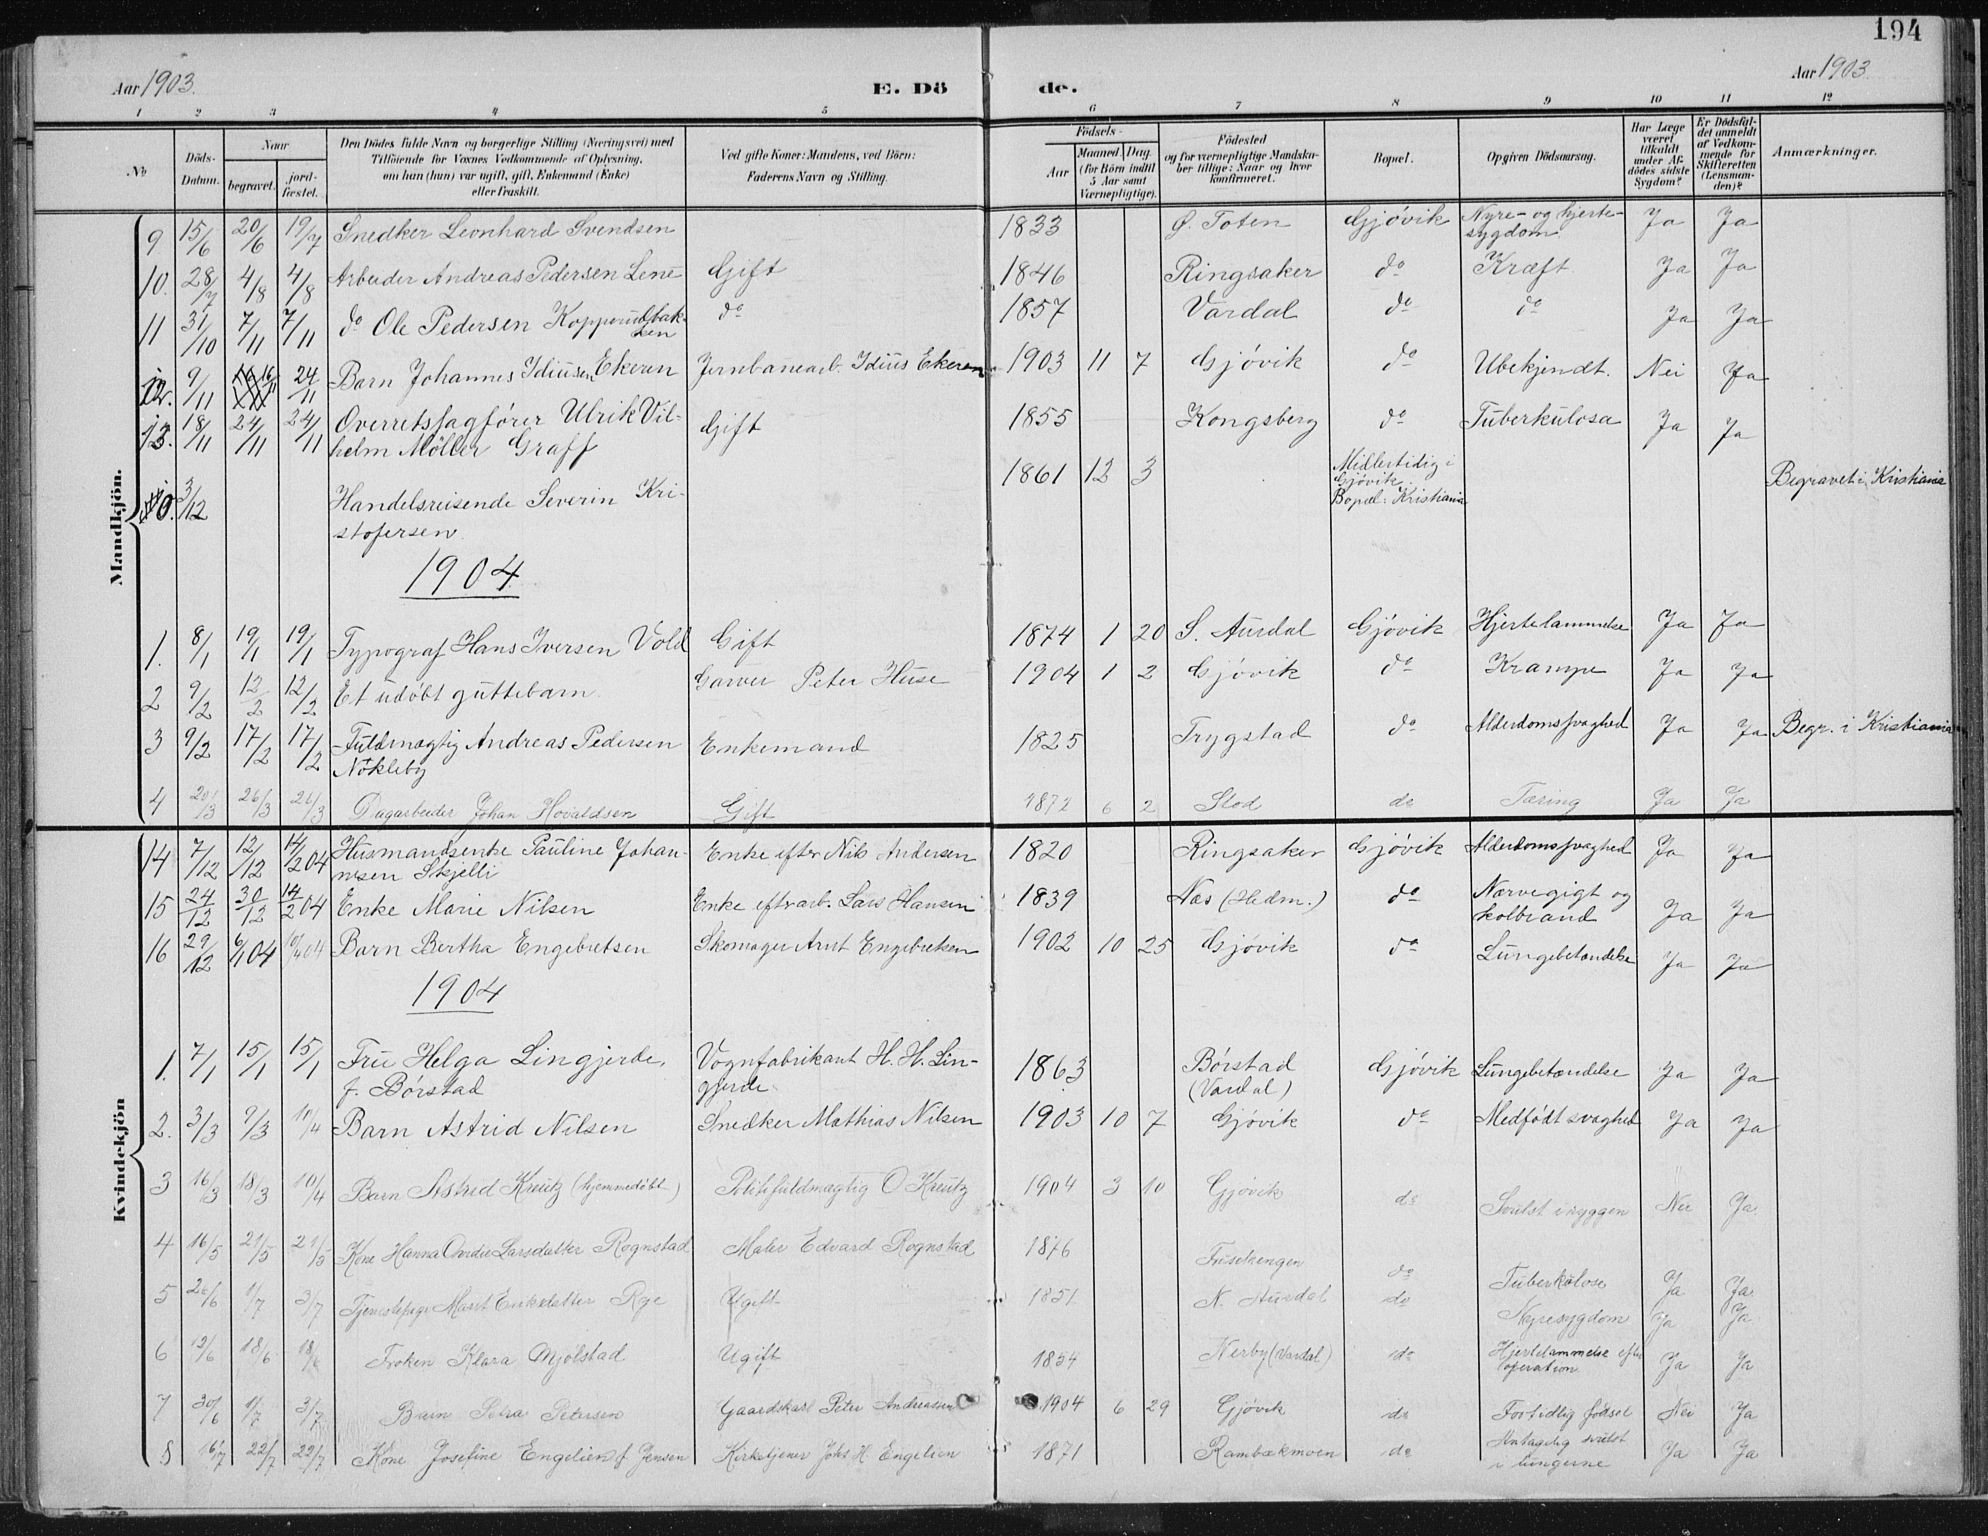 194
Aar 1903. E. Dö de. Aar 1903.
1 2 3 4 5 6 7 8 9 10 11 12
No
Döds-Datum.
Naar
begravet.
jord-fæstet.
Den Dödes fulde Navn og borgerlige Stilling (Næringsvei) med
Tilföiende for Voxnes Vedkommende af Oplysning,
om han (hun) var ugift, gift, Enkemand (Enke)
eller fraskilt.
Ved gifte Koner: Mandens, ved Börn:
Faderens Navn og Stilling.
Födsels-
Aar
Maaned. Dag.
(for Börn indtil
5 Aar samt
Værnepligtige).
Födested
og for værnepligtige Mandska-
ber tillige: Naar og hvor
konfirmeret.
Bopæl.
Opgiven Dödsaarsag.
Har Læge
været
tilkaldt
under Af-
dödes sidste
Sygdom?
Er Dödsfal-
det anmeldt
af Vedkom-
mende for
Skifteretten
(Lensman-
den)?
Anmærkninger.
Mandkjön.
9 15/6 20/6 19/7 Snedker Leonhard Svendsen 1833 Ø. Toten Gjövik Nyre- og hjerte-
sygdom. Ja Ja
10. 28/7 4/8 4/8 Arbeider Andreas Pedersen Lene Gift 1846 Ringsaker do Kræft. Ja Ja
11 31/10 7/11 7/11 do Ole Pedersen Kopperudbak-
ken do 1857 Vardal do do Ja Ja
12. 9/11 16/11 24/11 Barn Johannes Idiusen Ekeren Jernbanearb. Idius Ekeren 1903 11 7 Gjövik do Ubekjendt. Nei Ja
13. 18/11 24/11 24/11 Overretssagförer Ulrik Vil-
helm Möller Graff Gift 1855 Kongsberg do Tuberkulosa Ja Ja
0. 3/12 Handelsreisende Severin Kri-
stofersen. 1861 12 3 Midlertidig i
Gjövik.
Bopæl: Kristiania Begravet i Kristiania
1904
1. 8/1 19/1 19/1 Typograf Hans Iversen Vold Gift 1874 1 20 S. Aurdal Gjövik Hjertelammelse Ja Ja
2 9/2 12/2 12/2 Et udöbt guttebarn. Garver Peter Huse 1904 1 2 Gjövik do Krampe Ja Ja
3 9/2 17/2 17/2 Fuldmægtig Andreas Pedersen
Nökleby Enkemand 1825 Trygstad do Alderdomssvaghed Ja Ja Begr. i Kristiania
4 20/3 26/3 26/3 Dagarbeider Johan Hovaldsen Gift 1872 6 2 Stod do Tæring Ja Ja
Kvindekjön
14 7/12 12/12 14/2 04 Husmandsenke Pauline Johan-
nesen Skjelli Enke efter Nils Andersen 1820 Ringsaker Gjövik Alderdomssvaghed Ja Ja
15 24/12 30/12 14/2 04 Enke Marie Nilsen Enke eft. arb. Lars Hansen 1839 Næs (Hedm.) do Nærvegigt og
kolbrand Ja Ja
16 29/12 6/1 04 10/4 04 Barn Bertha Engebretsen Skomager Arnt Engebretsen 1902 10 25 Gjövik do Lungebetændelse Ja Ja
1904
1. 7/1 15/1 15/1 Fru Helga Lingjerde,
f. Börstad Vognfabrikant H. H. Lin-
gjerde. 1863 Börstad
(Vardal) Gjövik Lungebetændelse Ja Ja
2. 3/3 9/3 10/4 Barn Astrid Nilsen Snedker Mathias Nilsen 1903 10 7 Gjövik do Medfödt svaghed Ja Ja
3 16/3 18/3 10/4 Barn Astrid Kreutz (hjemmedöbt) Politifuldmægtig O Kreutz 1904 3 10 Gjövik do Svulst i ryggen Nei Ja
4 16/5 21/5 21/5 Kone Hanna Ovidie Larsdatter Rognstad Maler Edvard Rognstad 1876 do Tuberkulose Ja Ja
5 26/6 1/7 3/7 Tjenestepige Marit Eriksdatter Rge Ugift 1851 N. Aurdal do Nyresygdom Ja Ja
6 12/6 18/6 18/6 Fröken Klara Mjölstad Ugift 1854 Nerby (Vardal) do Hjertelammelse efter
operation. Ja Ja
7 30/6 1/7 3/7 Barn Petra Petersen Gaardskarl Peter Andreassen 1904 6 29 Gjövik do Fortidlig födsel Nei Ja
8 16/7 22/7 22/7 Kone Josefine Engelien f. Jensen Kirketjener Johs H. Engelien 1871 Rambækmoen do Antagelig svulst
i lungerne Ja Ja